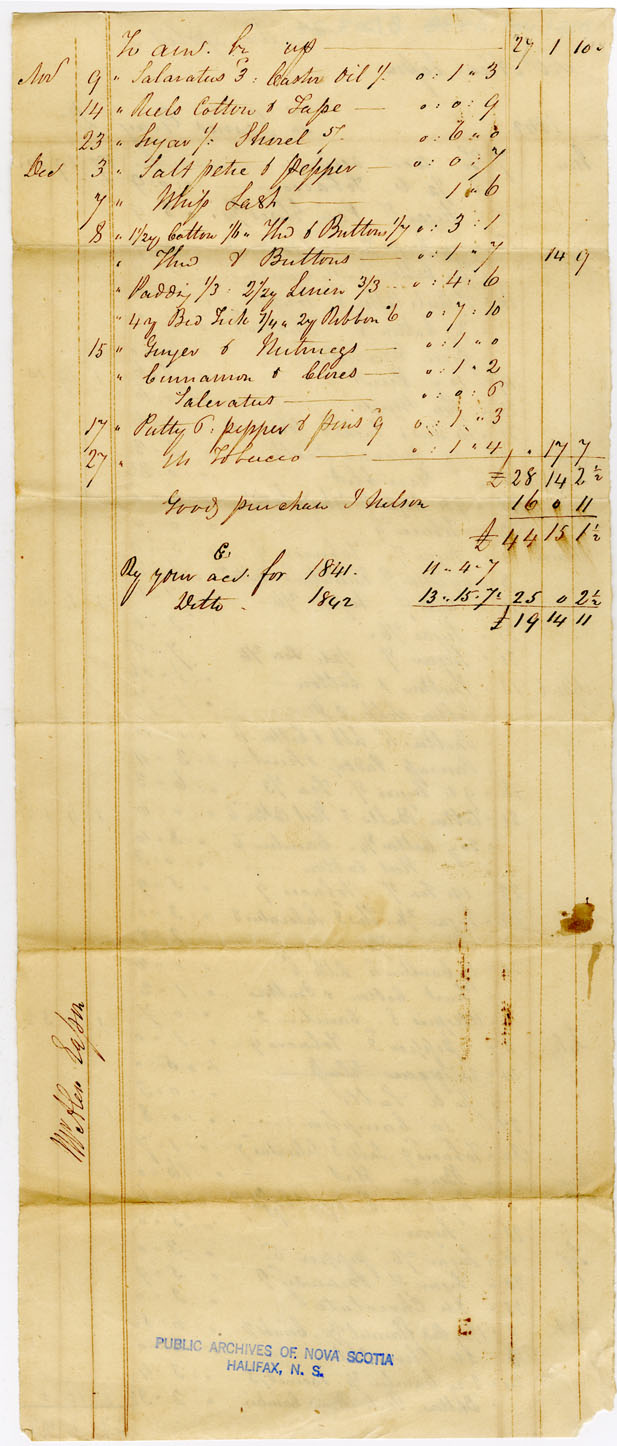 To amt. br. up 27 1 10
Nov 9 " Salaratus 3: Castor Oil 1/. 0:1"3
14 " Reels Cotton & Tape 0:0:9
23 " Sugar 1/: Shovel 5/. 0:6"0
Dec 3 " Salt petre & pepper 0:0:7
7 " Whip Lash 1"6
8 " 1 1/2 y Cotton 1/6 " Thd & Buttons 1/7 0:3:1
" Thd & Buttons 0:1"7 14 9
" Padding 1/3: 2 1/2 y Linen 3/3 0:4:6
" 4 y Bed Tick 7/4 " 2 y Ribbon 6 0:7:10
15 " Ginger & Nutmegs 0:1"0
" Cinnamon & Cloves 0:1"2
Saleratus 0:0:6
17 " Putty 6: pepper & pins 9 0:1"3
27 " Tobacco 0:1"4 1"17 7
£ 28 14 2 1/2
Goods purchase J Nelson 16 0 11
£ 44 15 1 1/2
Cr.
By your acct. for 1841. 11"4"7
Ditto. 1842 13"15"7 1/2 25 0 2 1/2
£ 19 14 11
Mr Alex
PUBLIC ARCHIVES OF NOVA SCOTIA
HALIFAX, N. S.